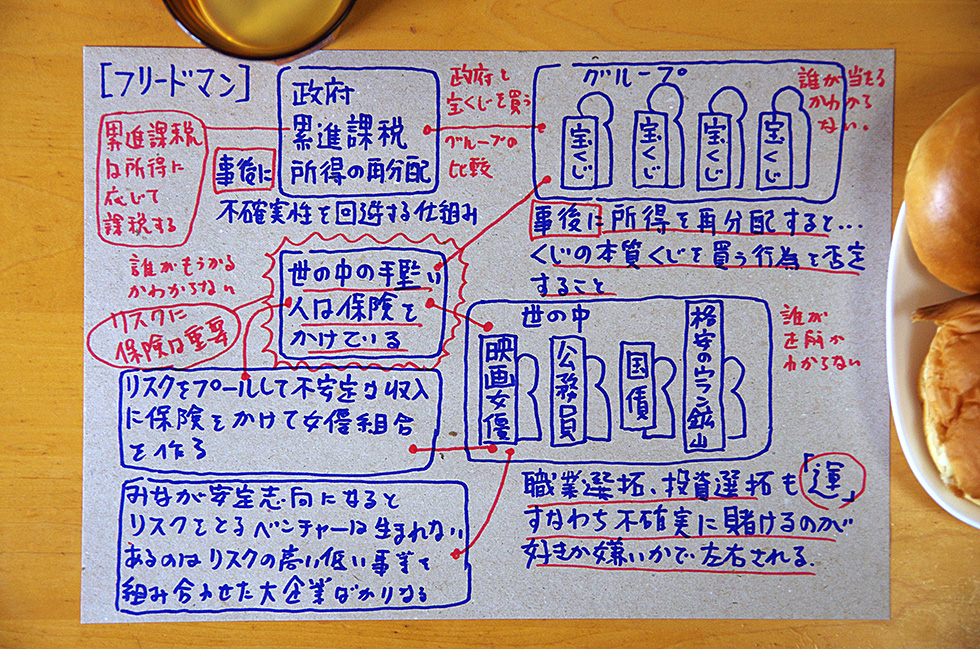 [フリードマン]
政府
累進課税
所得の再分配
事後に
不確実性を回避する仕組み
累進課税
は所得に
応じて
課税する
政府と
宝くじを買う
グループの
比較
グループ
宝くじ
宝くじ
宝くじ
宝くじ
誰が当たる
かわから
ない。
事後に所得を再分配すると…
くじの本質くじを買う行為を否定
すること
誰がもうかる
かわからない
リスクに
保険は重要
世の中の手堅い
人は保険を
かけている
世の中
映画女優
公務員
国債
格安のウラン鉱山
誰が
わからない
リスクをプールして不安定な収入
に保険をかけて女優組合
を作る
みなが安定志向になると
リスクをとるベンチャーは生まれない
あるのはリスクの高い低い事業を
組み合わせた大企業ばかりなる
職業選択、投資選択も「運」
すなわち不確実に賭けるのが
好きか嫌いかで左右される.